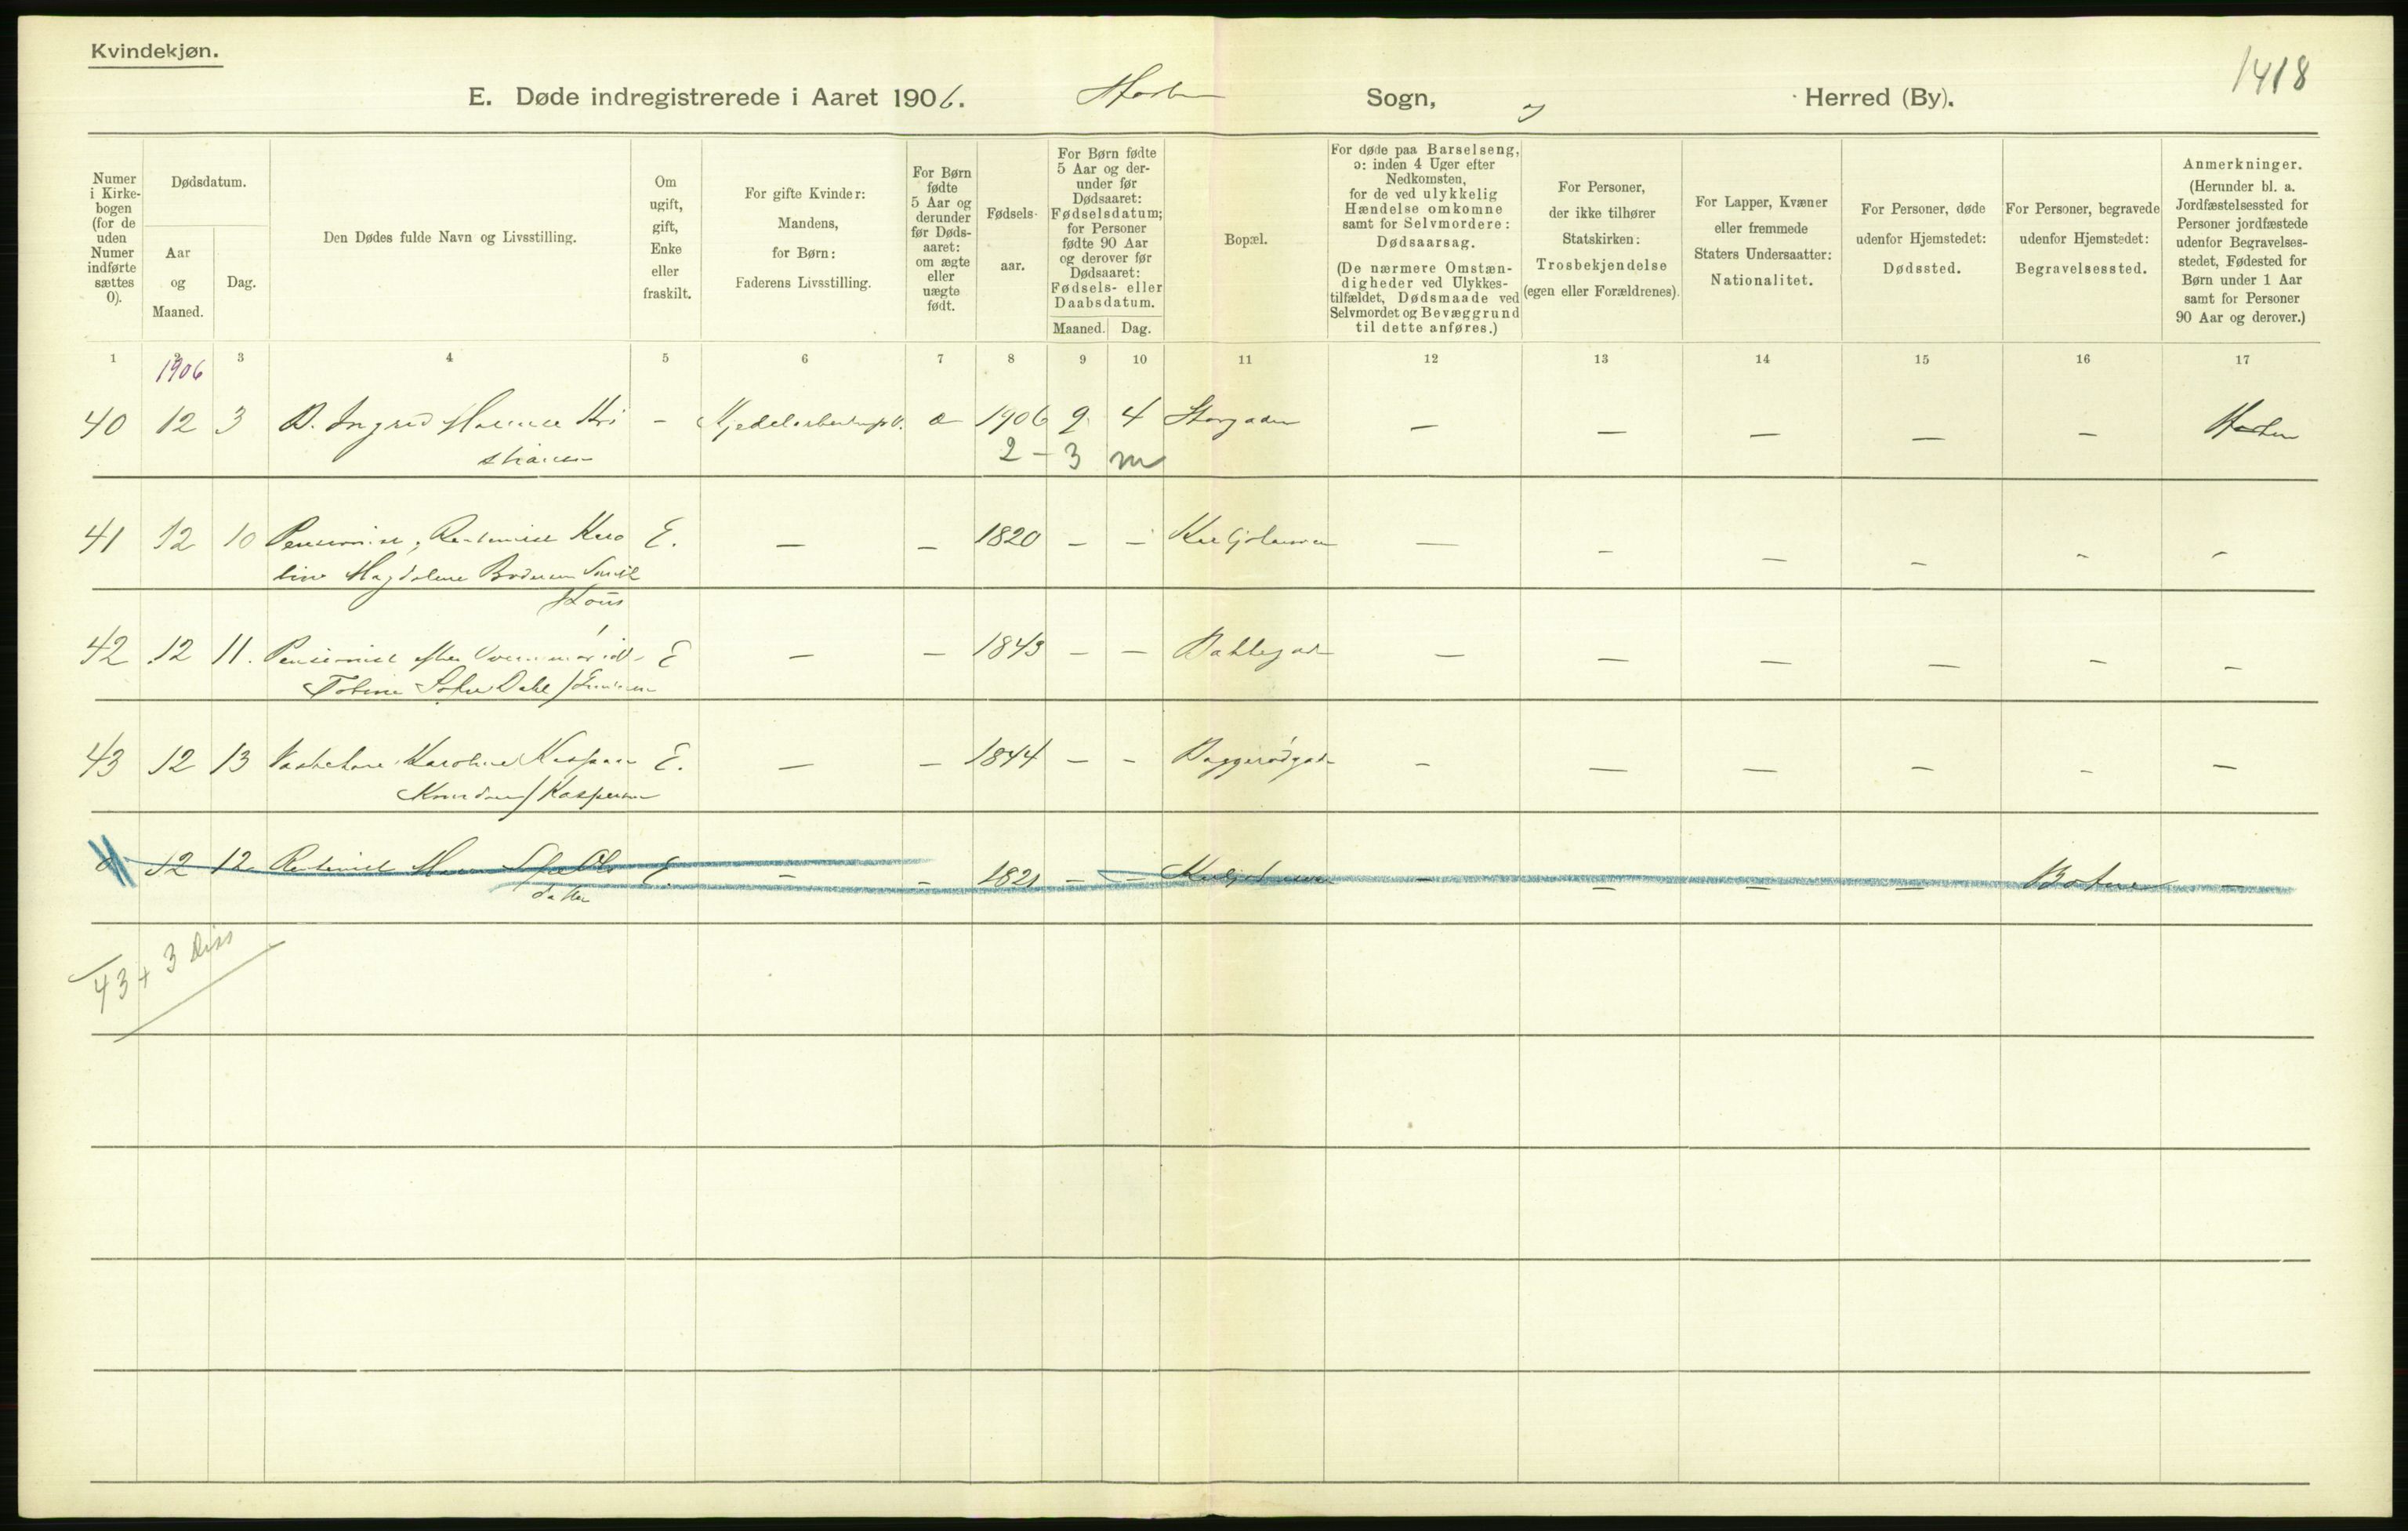 Kvindekjøn.
1418
E. Døde indregistrerede i Aaret 1906. Horten Sogn, og Herred (By).
Numer i Kirke-bogen (for de uden Numer indførte sættes 0).
Dødsdatum.
Aar og Maaned.
Dag.
Den Dødes fulde Navn og Livsstilling.
Om ugift, gift, Enke eller fraskilt.
For gifte Kvinder: Mandens, for Børn: Faderens Livsstilling.
For Børn fødte 5 Aar og derunder før Døds-aaret: om ægte eller uægte født.
Fødsels-aar.
For Børn fødte 5 Aar og der-under før Dødsaaret: Fødselsdatum; for Personer fødte 90 Aar og derover før Dødsaaret: Fødsels- eller Daabsdatum.
Maaned. Dag.
Bopæl.
For døde paa Barselseng, ɔ: inden 4 Uger efter Nedkomsten, for de ved ulykkelig Hændelse omkomne samt for Selvmordere: Dødsaarsag.
(De nærmere Omstæn-digheder ved Ulykkes-tilfældet, Dødsmaade ved Selvmordet og Bevæggrund til dette anføres.)
For Personer, der ikke tilhører Statskirken: Trosbekjendelse (egen eller Forældrenes).
For Lapper, Kvæner eller fremmede Staters Undersaatter: Nationalitet.
For Personer, døde udenfor Hjemstedet: Dødssted.
For Personer, begravede udenfor Hjemstedet: Begravelsessted.
Anmerkninger.
(Herunder bl. a. Jordfæstelsessted for Personer jordfæstede udenfor Begravelses-stedet, Fødested for Børn under 1 Aar samt for Personer 90 Aar og derover.)
1 2 3 4 5 6 7 8 9 10 11 12 13 14 15 16 17
1906
40 12 3 D. Ingrid Hri - 1906 9 4 Storgaden - - - - - Horten
stiansen 2 - 3 m
41 12 10 Pensionist, Rentenist Karo E. - - 1820 - - - - - - - -
line Magdalene
42 12 11. Pensionist efter E - - 1843 - - - - - - - -
Tobine Sofie Dahl /
43 12 13 Karoline E. - - 1844 - - - - - - - -
Knudsen / Kaspersen
0 12 12 E. - - 1821 - - - - - - Botne -
datter
43 + 3 Diss